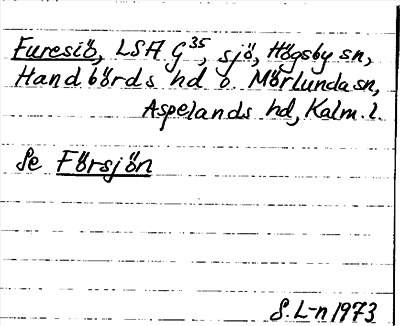 Furesiö, LSA G35, sjö, Högsby sn,
Handbörds hd o. Mörlunda sn,
Aspelands hd, Kalm. l.
Se Försjön
S. L-n 1973